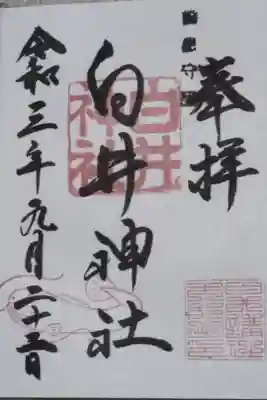 奉拝
白井神社
白井
神社
令和三年九月二十三日